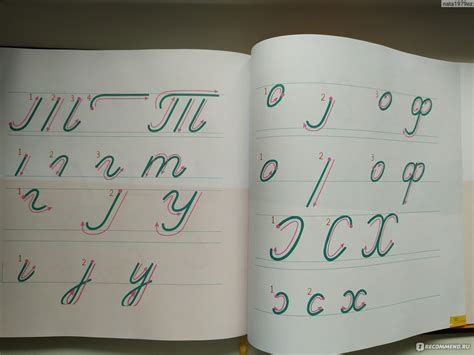 nata1979ez
1 2 3 4 Т
1 2 3 т
1 2 У
1 2 у
1 2 3 Ф
1 2 3 ф
1 2 Х
1 2 х
IRECOMMEND.RU